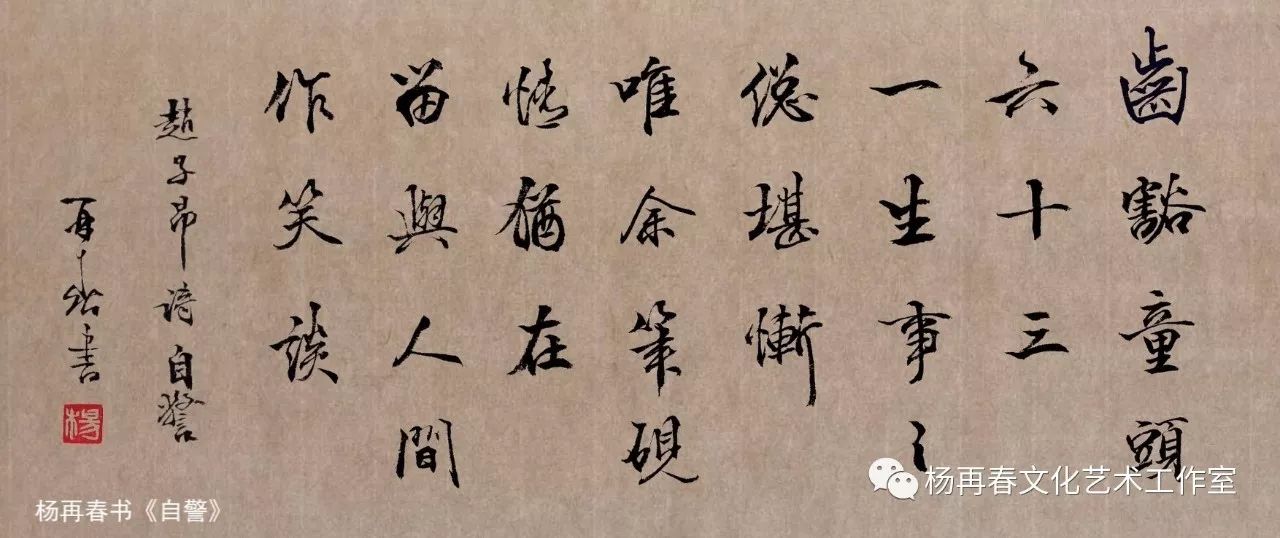 齒豁童頭
六十三
一生事々
總堪慚
唯余筆硯
情猶在
留與人間
作笑談
趙子昂詩自警
再春書
楊
杨再春文化艺术工作室
杨再春书《自警》